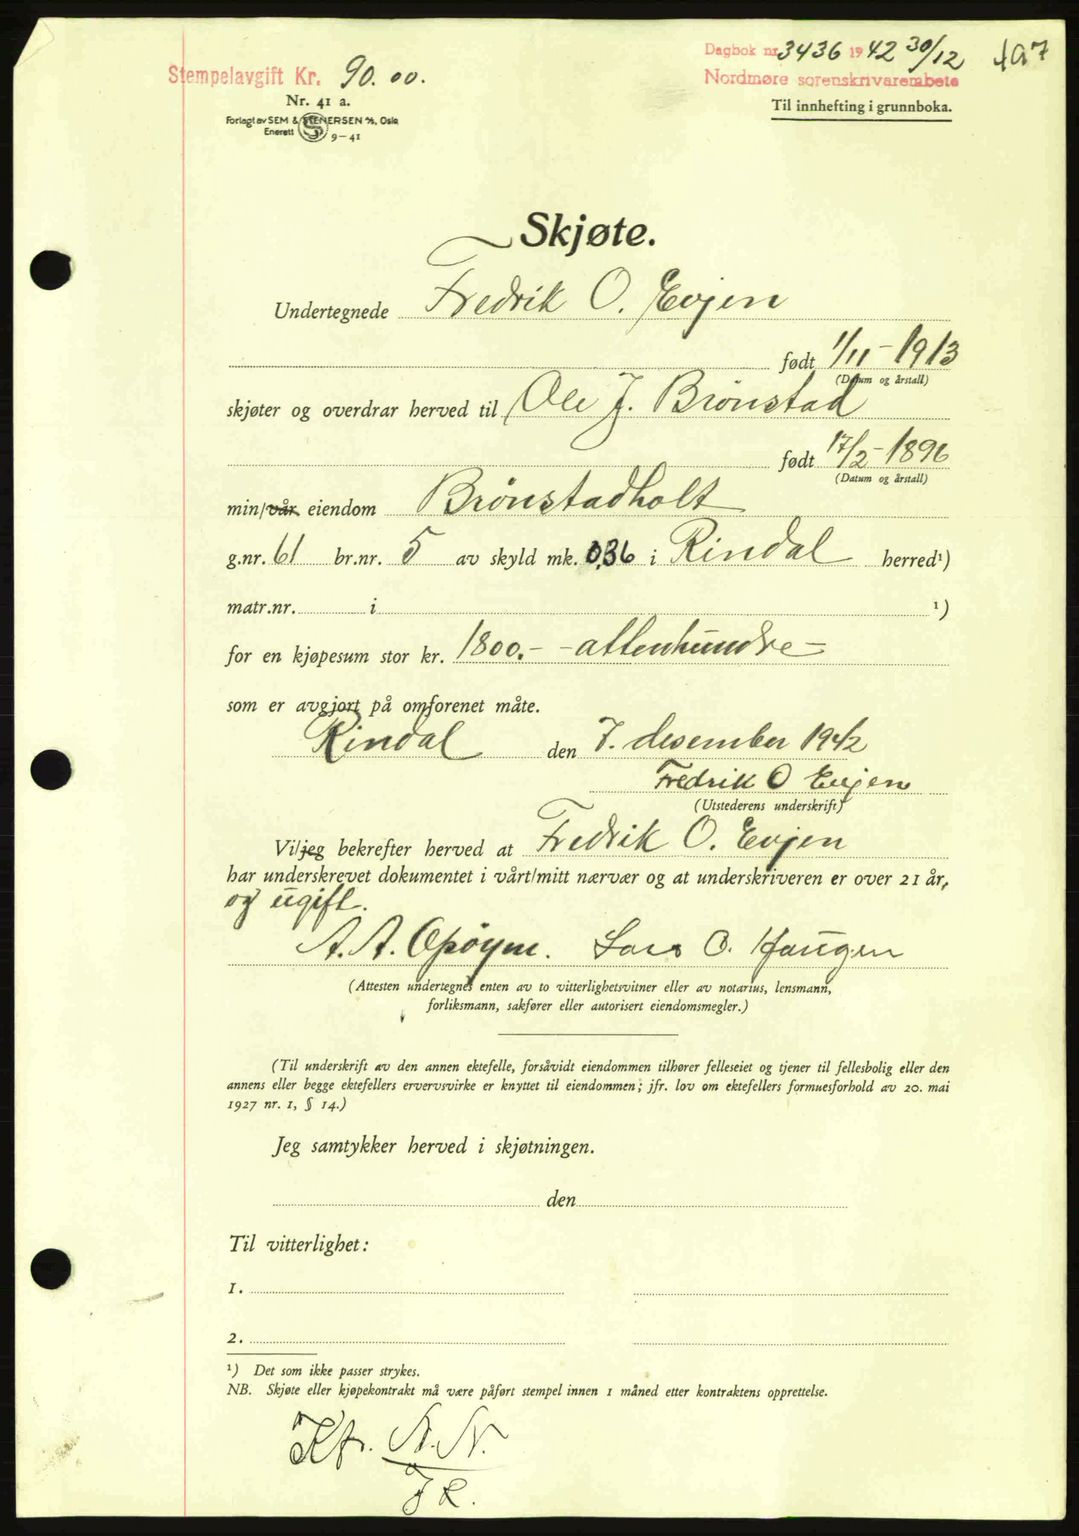 Dagbok nr 3436 1942 30/12
197
Stempelavgift Kr. 90.00.
Nordmøre sorenskrivarembete
Nr. 41 a.
Til innhefting i grunnboka.
Forlagt av SEM & STENERSEN A/S, Oslo
Enerett S 9-41
Skjøte.
Undertegnede Fredrik O. Evjen
født 1/11-1913
(Datum og årstall)
skjøter og overdrar herved til Ole J. Brønstad
født 17/2-1896
(Datum og årstall)
min/vår eiendom Brønstadholt
g.nr. 61 br.nr. 5 av skyld mk. 0,36 i Rindal herred¹)
matr.nr. i ¹)
for en kjøpesum stor kr. 1800.- -attenhundre-
som er avgjort på omforenet måte.
Rindal den 7. desember 1942
Fredrik O Evjen
(Utstederens underskrift)
Vi/jeg bekrefter herved at Fredrik O. Evjen
har underskrevet dokumentet i vårt/mitt nærvær og at underskriveren er over 21 år,
og ugift.
A. A. Opøym. Lars O. Haugen
(Attesten undertegnes enten av to vitterlighetsvitner eller av notarius, lensmann,
forliksmann, sakfører eller autorisert eiendomsmegler.)
(Til underskrift av den annen ektefelle, forsåvidt eiendommen tilhører felleseiet og tjener til fellesbolig eller den
annens eller begge ektefellers ervervsvirke er knyttet til eiendommen; jfr. lov om ektefellers formuesforhold av 20. mai
1927 nr. 1, § 14.)
Jeg samtykker herved i skjøtningen.
den
Til vitterlighet:
1.
2.
¹) Det som ikke passer strykes.
NB. Skjøte eller kjøpekontrakt må være påført stempel innen 1 måned etter kontraktens opprettelse.